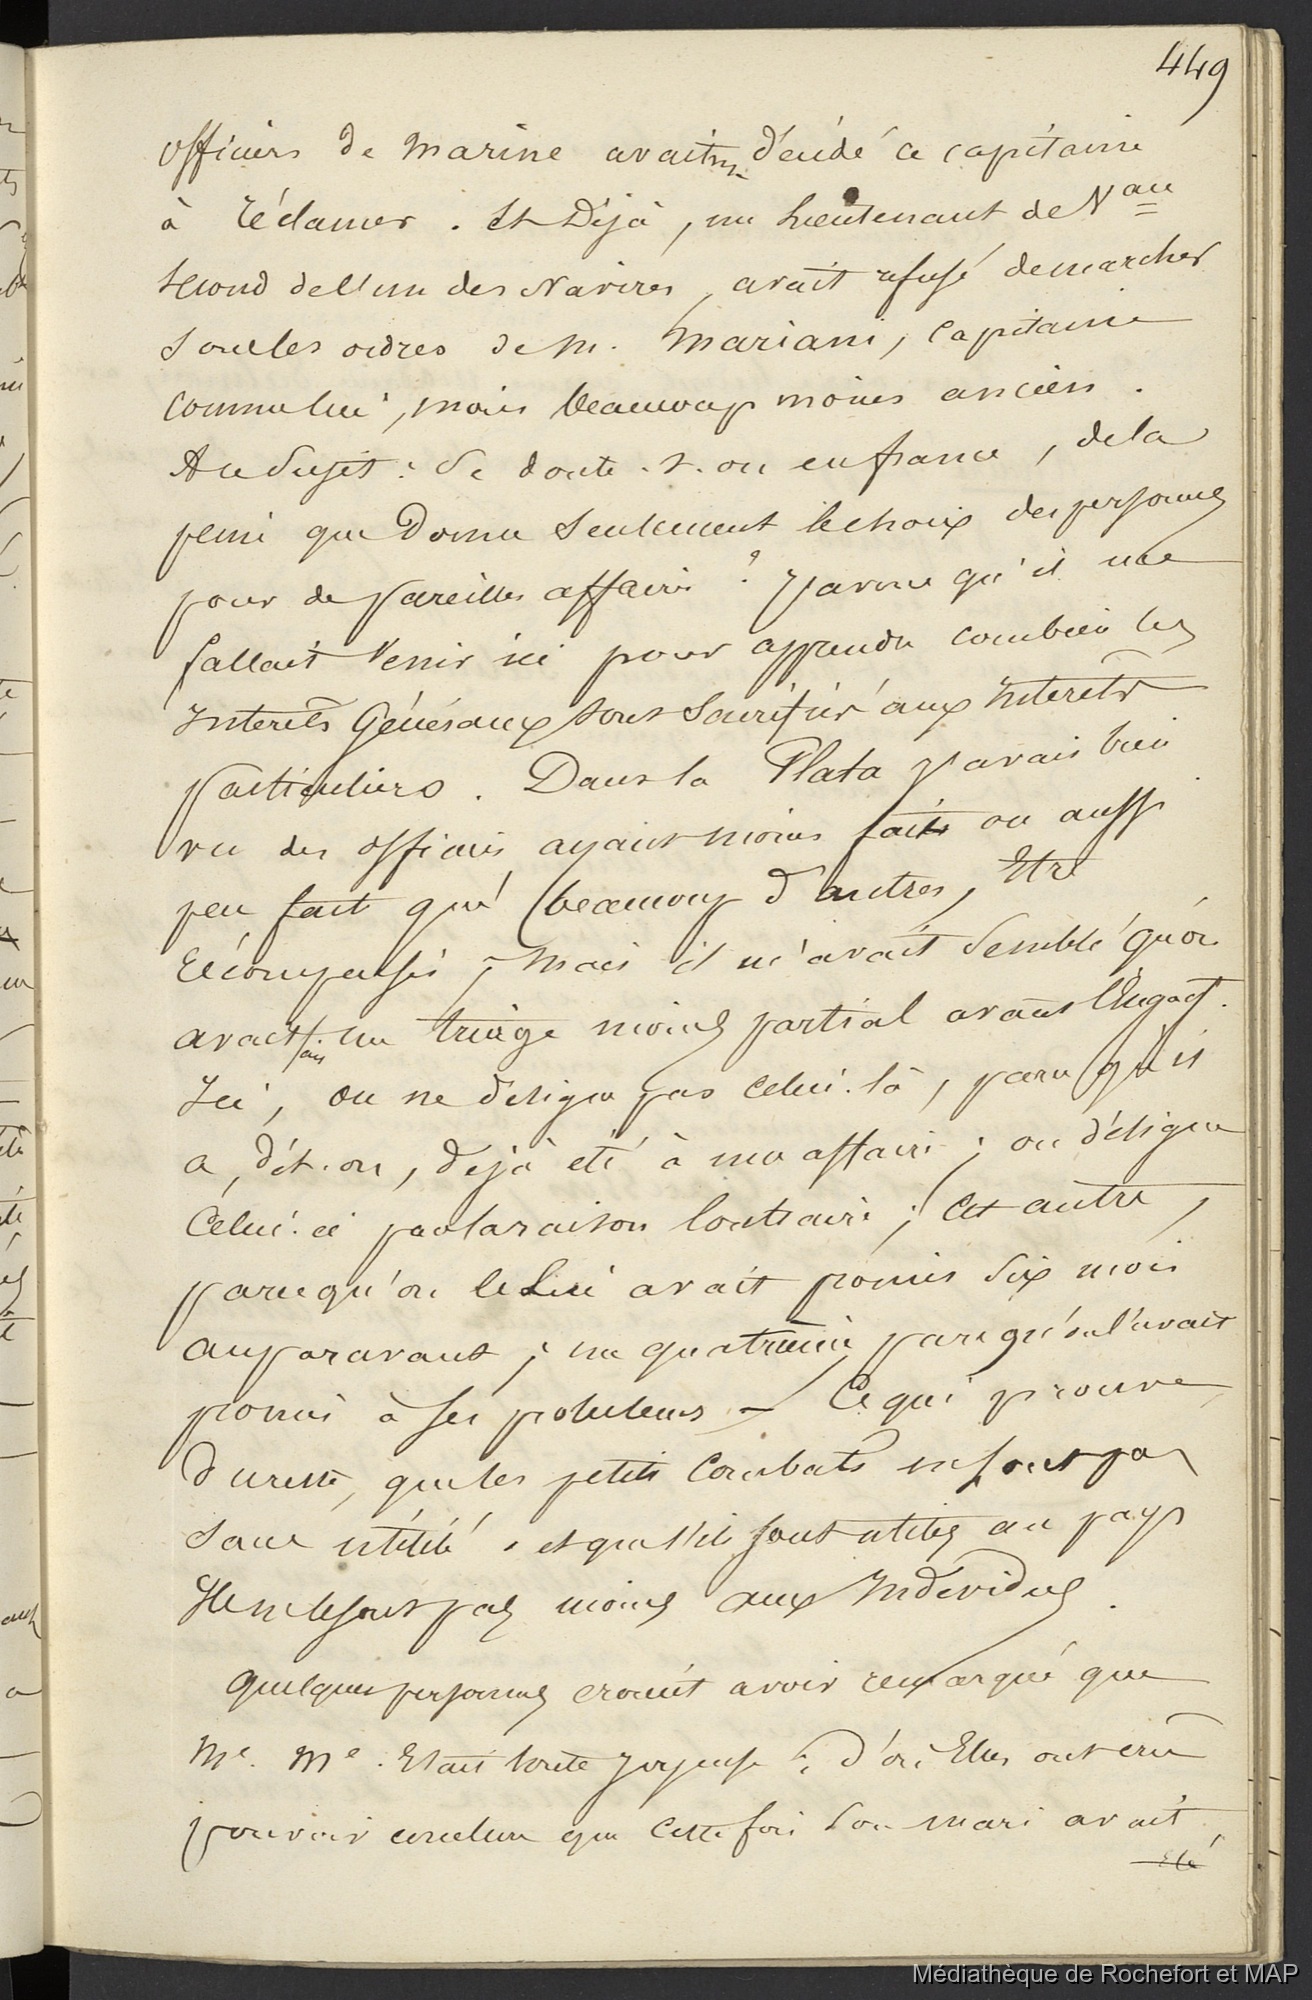 449
officiers de marine avaient décidé ce capitaine
à réclamer. Et Déjà, un Lieutenant de Vau
second de l'un des Navires, avait refusé de marcher
sous les ordres de M. Mariani, capitaine
comme lui, mais beaucoup moins ancien.
Au sujet : Se doute-t-on en france, de la
peine que Donne Seulement le choix des personnes
pour de pareilles affaires ? J'avoue qu'il me
fallait Venir ici pour apprendre combien les
Interets Généraux sont Sacrifiés aux Interets
particuliers. Dans la Plata j'avais bien
vu des officiers ayant moins faits ou aussi
peu fait que beaucoup d'autres, Etre
récompensés ; Mais il m'avait Semblé qu'on
avait fais un triage moins partial avant l'Engagt.
Ici, on ne désigne pas celui-là, parce qu'il
a, dit-on, déjà été à une affaire ; on désigne
Celui-ci par la raison Contraire ; Cet autre,
parce qu'on le Lui avait promis Six mois
auparavant ; un quatrième parce qu'on l'avait
promis à Ses protecteurs – Ce qui prouve,
du reste, que les petits Combats ne sont pas
sans utilité, et que s'ils sont utiles au pays
Ils ne le sont pas moins aux Individus.
quelques personnes croient avoir remarqué que
Me. Me. Etait toute joyeuse ; d'où Elles ont crû
pouvoir conclure que cette fois Son mari avait
Eté
Médiathèque de Rochefort et MAP